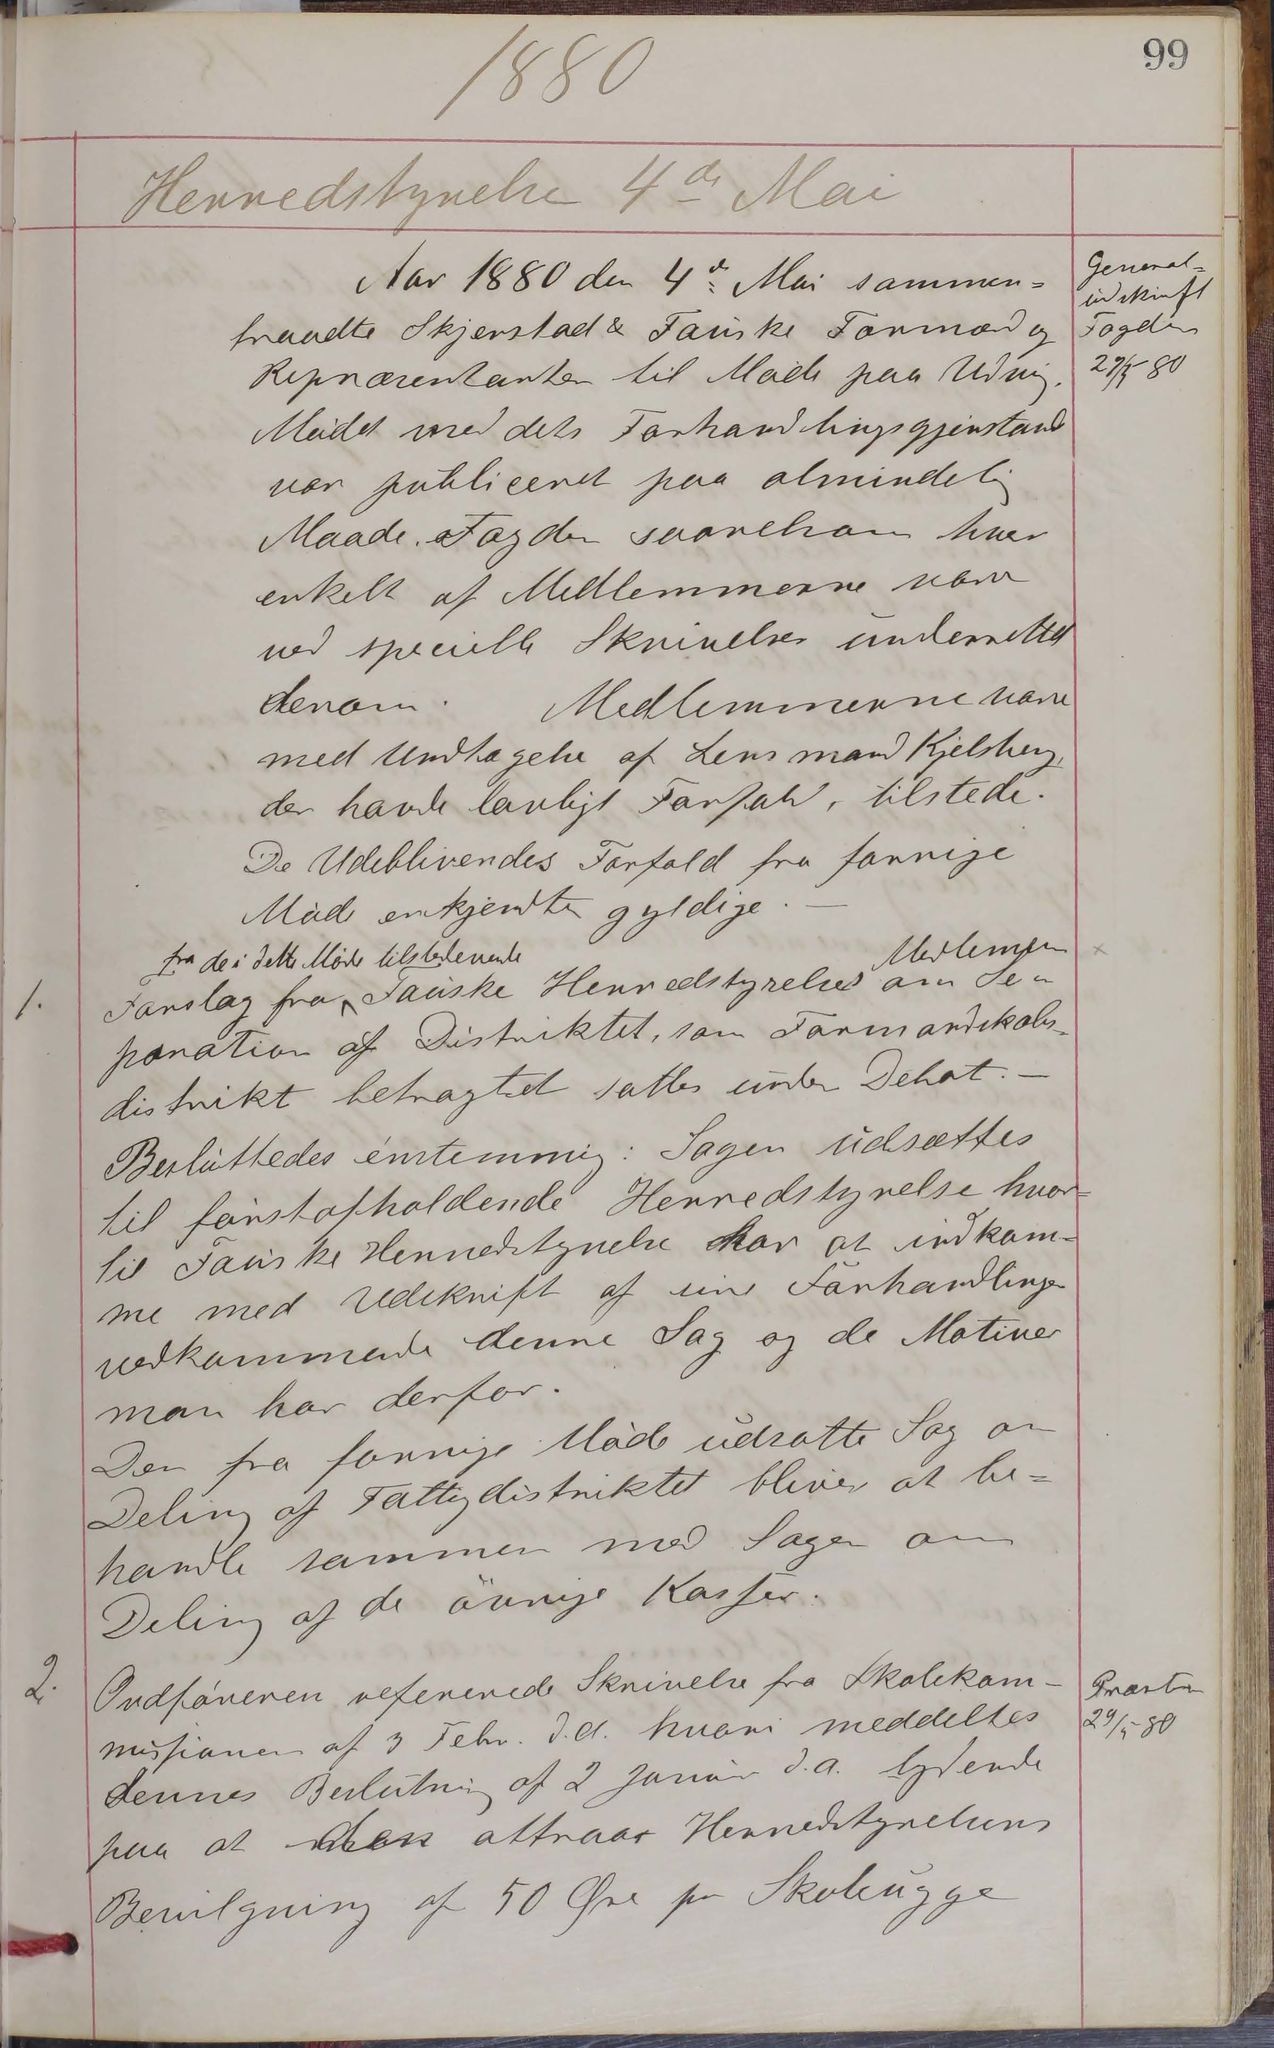 99
1880
Herredstyrelse 4de Mai
Aar 1880 den 4de Mai sammen=
traadte Skjerstad & Fauske Formænd og
Repræsentanter til Møde paa Udnig.
Mødet med dets Forhandlingsgjenstand
var publiceret paa almindelig
Maade. Fogden saavelsom hver
enkelt af Medlemmerne vare
ved specielle Skrivelser underrettet
derom. Medlemmerne vare
med Undtagelse af Lensmand Kjelsberg,
der havde lovligt Forfald, tilstede.
De Udeblivendes Forfald fra forrige
Møde erkjendtes gyldige. —
General=
udskrift
Fogden
29/5 80
fra de i dette Møde tilstedeværende Medlemmer
1. Forslag fra Fauske Herredstyrelses om Se=
paration af Distriktet, som Formandskabs=
distrikt betragtet sattes under Debat. —
Besluttedes énstemmig: Sagen udsættes
til førstafholdende Herredstyrelse hvor=
til Fauske Herredstyrelse har at indkom=
me med Udskrift af sine Forhandlinger
vedkommende denne Sag og de Motiver
man har derfor.
Den fra forrige Møde udsatte Sag om
Deling af Fattigdistriktet bliver at be=
handle sammen med Sagen om
Deling af de øvrige Kasser.
2. Ordføreren refererede Skrivelse fra Skolekom-
missionen af 3 Febr. d.A. hvori meddeltes
dennes Beslutning af 2 Januar d.A. lydende
paa at attraar Herredstyrelsens
Bevilgning af 50 Øre pr Skoleugge
Præsten
29/5 80